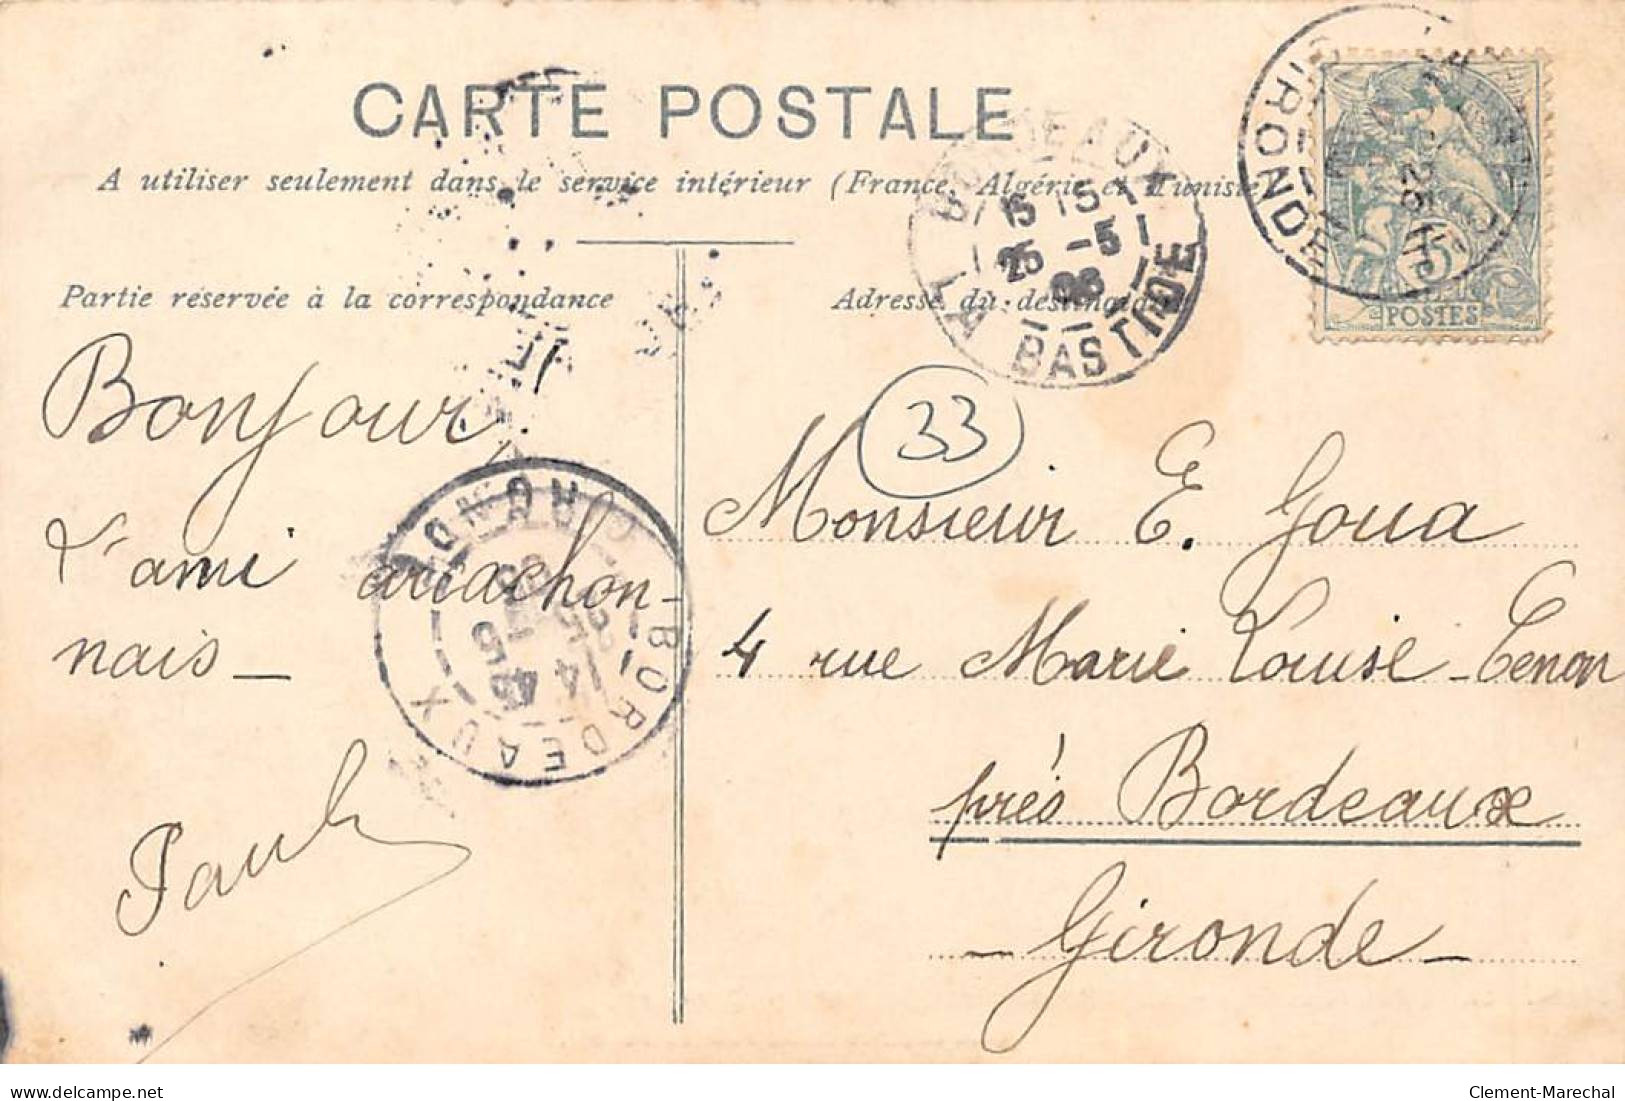 CARTE POSTALE
A utiliser seulement dans le service intérieur (France, Algérie et Tunisie)
Partie réservée à la correspondance
Adresse du destinataire
Bonjour!
L'ami arcachon-
nais —
Paul
33
Monsieur E. Goua
4 rue Marie Louise - Tenon
près Bordeaux
— Gironde —
BORDEAUX
LA BASTIDE
15 15
25 -5
06
GIRONDE
5c
POSTES
BORDEAUX
GIRONDE
delcampe.net
Clement-Marechal